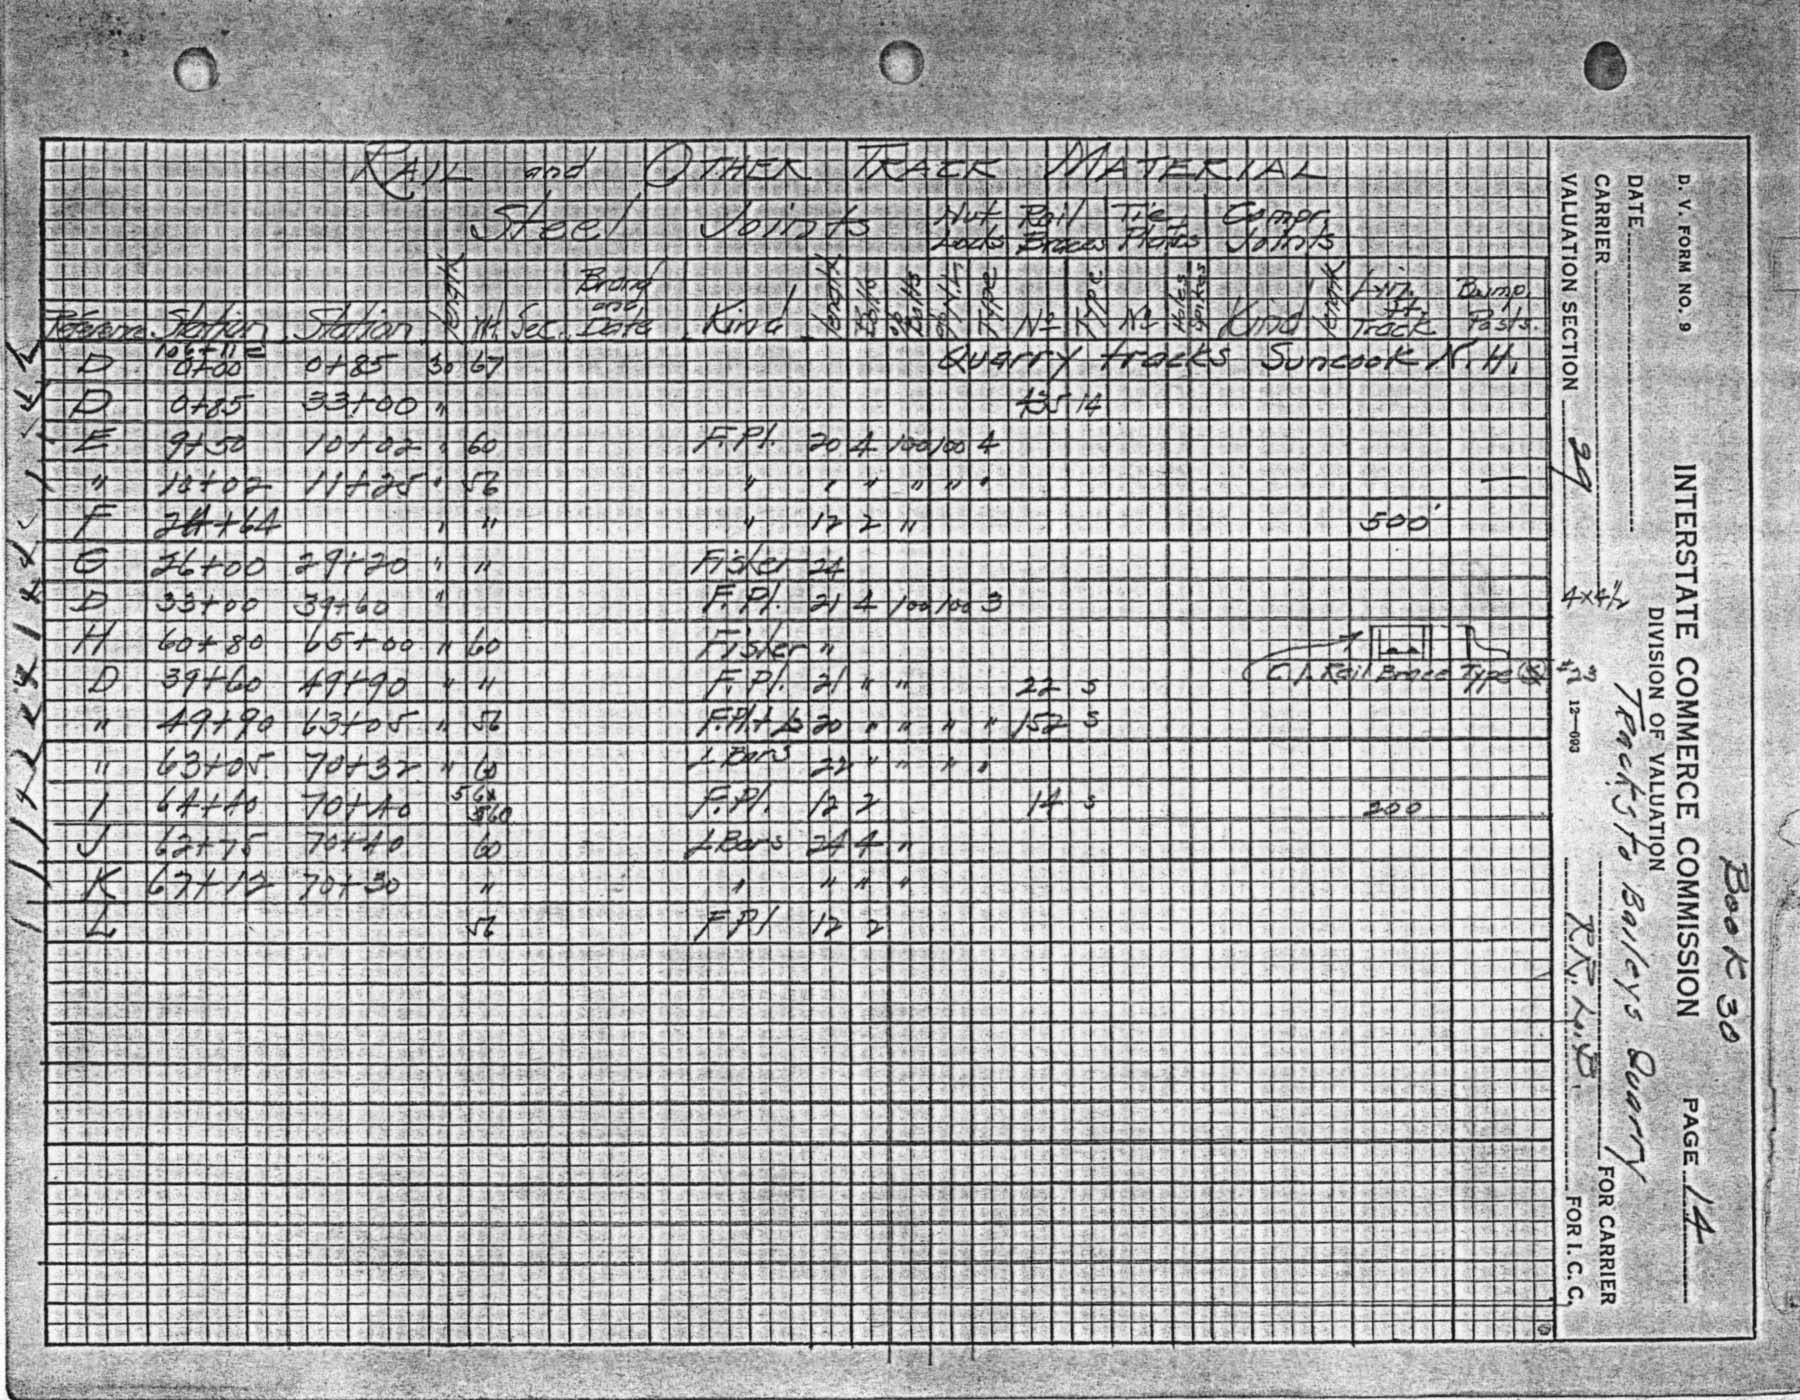 Book 30
D. V. FORM NO. 9 INTERSTATE COMMERCE COMMISSION PAGE 14
DIVISION OF VALUATION
DATE Tracks to Baileys Quarry
CARRIER FOR CARRIER
VALUATION SECTION 29 12-693 R.R. L.B. FOR I. C. C.
4x4½
#23
RAIL and OTHER TRACK MATERIAL
Steel Joints Nut Locks Rail Braces Tie Plates Compr. Joints
Reference Station Station Length Wt. Sec. Brand and Date Kind Length Bolts % Bolts % N.L. Type No Type No Holes Kind Length Lin. Ft. Track Bump. Posts.
D 0+00 0+85 30 67 Quarry tracks Suncook N.H.
D 0+85 33+00 " 435 14
E 9+50 10+02 " 60 F.Pl. 20 4 100 100 4
" 10+02 11+25 " 56 " " " " " " —
F 24+64 " " " 12 2 " 500'
G 26+00 29+20 " " Fisher 24
D 33+00 39+60 " F.Pl. 21 4 100 100 3
H 60+80 65+00 " 60 Fisher "
D 39+60 49+90 " " F.Pl. 21 " " 22 S C.I. Rail Brace Type S
" 49+90 63+05 " 56 F.Pl.+L 20 " " " " 152 S
" 63+05 70+32 " 60 L Bars 22 " " " "
I 64+40 70+40 56 & 60 F.Pl. 12 2 14 S 200
J 62+75 70+40 60 L Bars 24 4 "
K 67+12 70+30 " " " " "
L 56 F.Pl 12 2